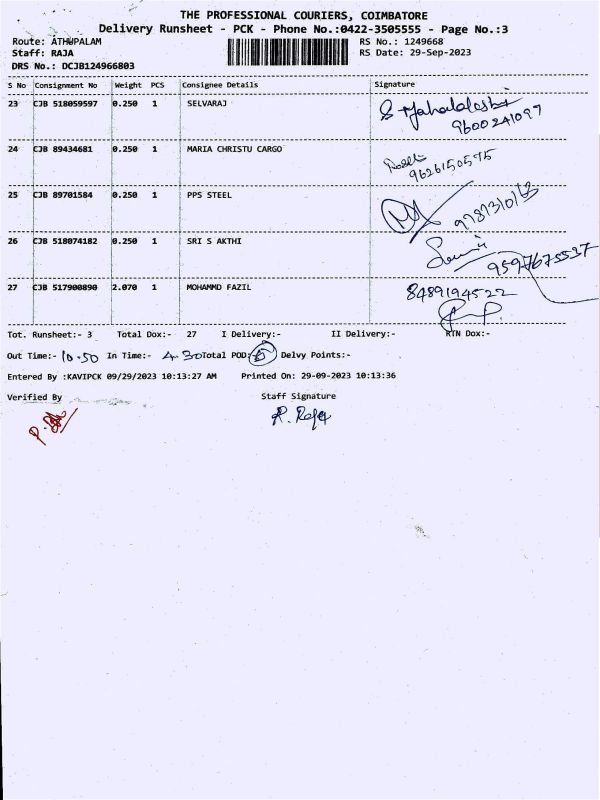 THE PROFESSIONAL COURIERS, COIMBATORE
Delivery Runsheet - PCK - Phone No.:0422-3505555 - Page No.:3
Route: ATHUPALAM RS No.: 1249668
Staff: RAJA RS Date: 29-Sep-2023
DRS No.: DCJB124966803
S No Consignment No Weight PCS Consignee Details Signature
23 CJB 518059597 0.250 1 SELVARAJ
9600241097
24 CJB 89434681 0.250 1 MARIA CHRISTU CARGO
9626150575
25 CJB 89701584 0.250 1 PPS STEEL
26 CJB 518074182 0.250 1 SRI S AKTHI
9597675537
27 CJB 517900890 2.070 1 MOHAMMD FAZIL 8489194522
Tot. Runsheet:- 3 Total Dox:- 27 I Delivery:- II Delivery:- RTN Dox:-
Out Time:- 10.50 In Time:- 4.30 Total POD: Delvy Points:-
Entered By :KAVIPCK 09/29/2023 10:13:27 AM Printed On: 29-09-2023 10:13:36
Verified By Staff Signature
R. Raja